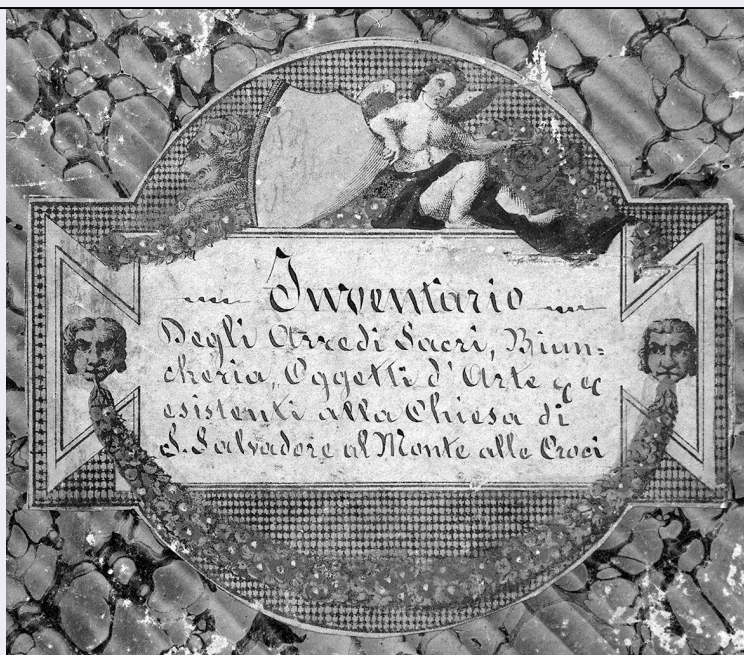 Inventario
Degli Arredi Sacri, Bian=
cheria, Oggetti d'Arte &c &c
esistenti alla Chiesa di
S. Salvadore al Monte alle Croci